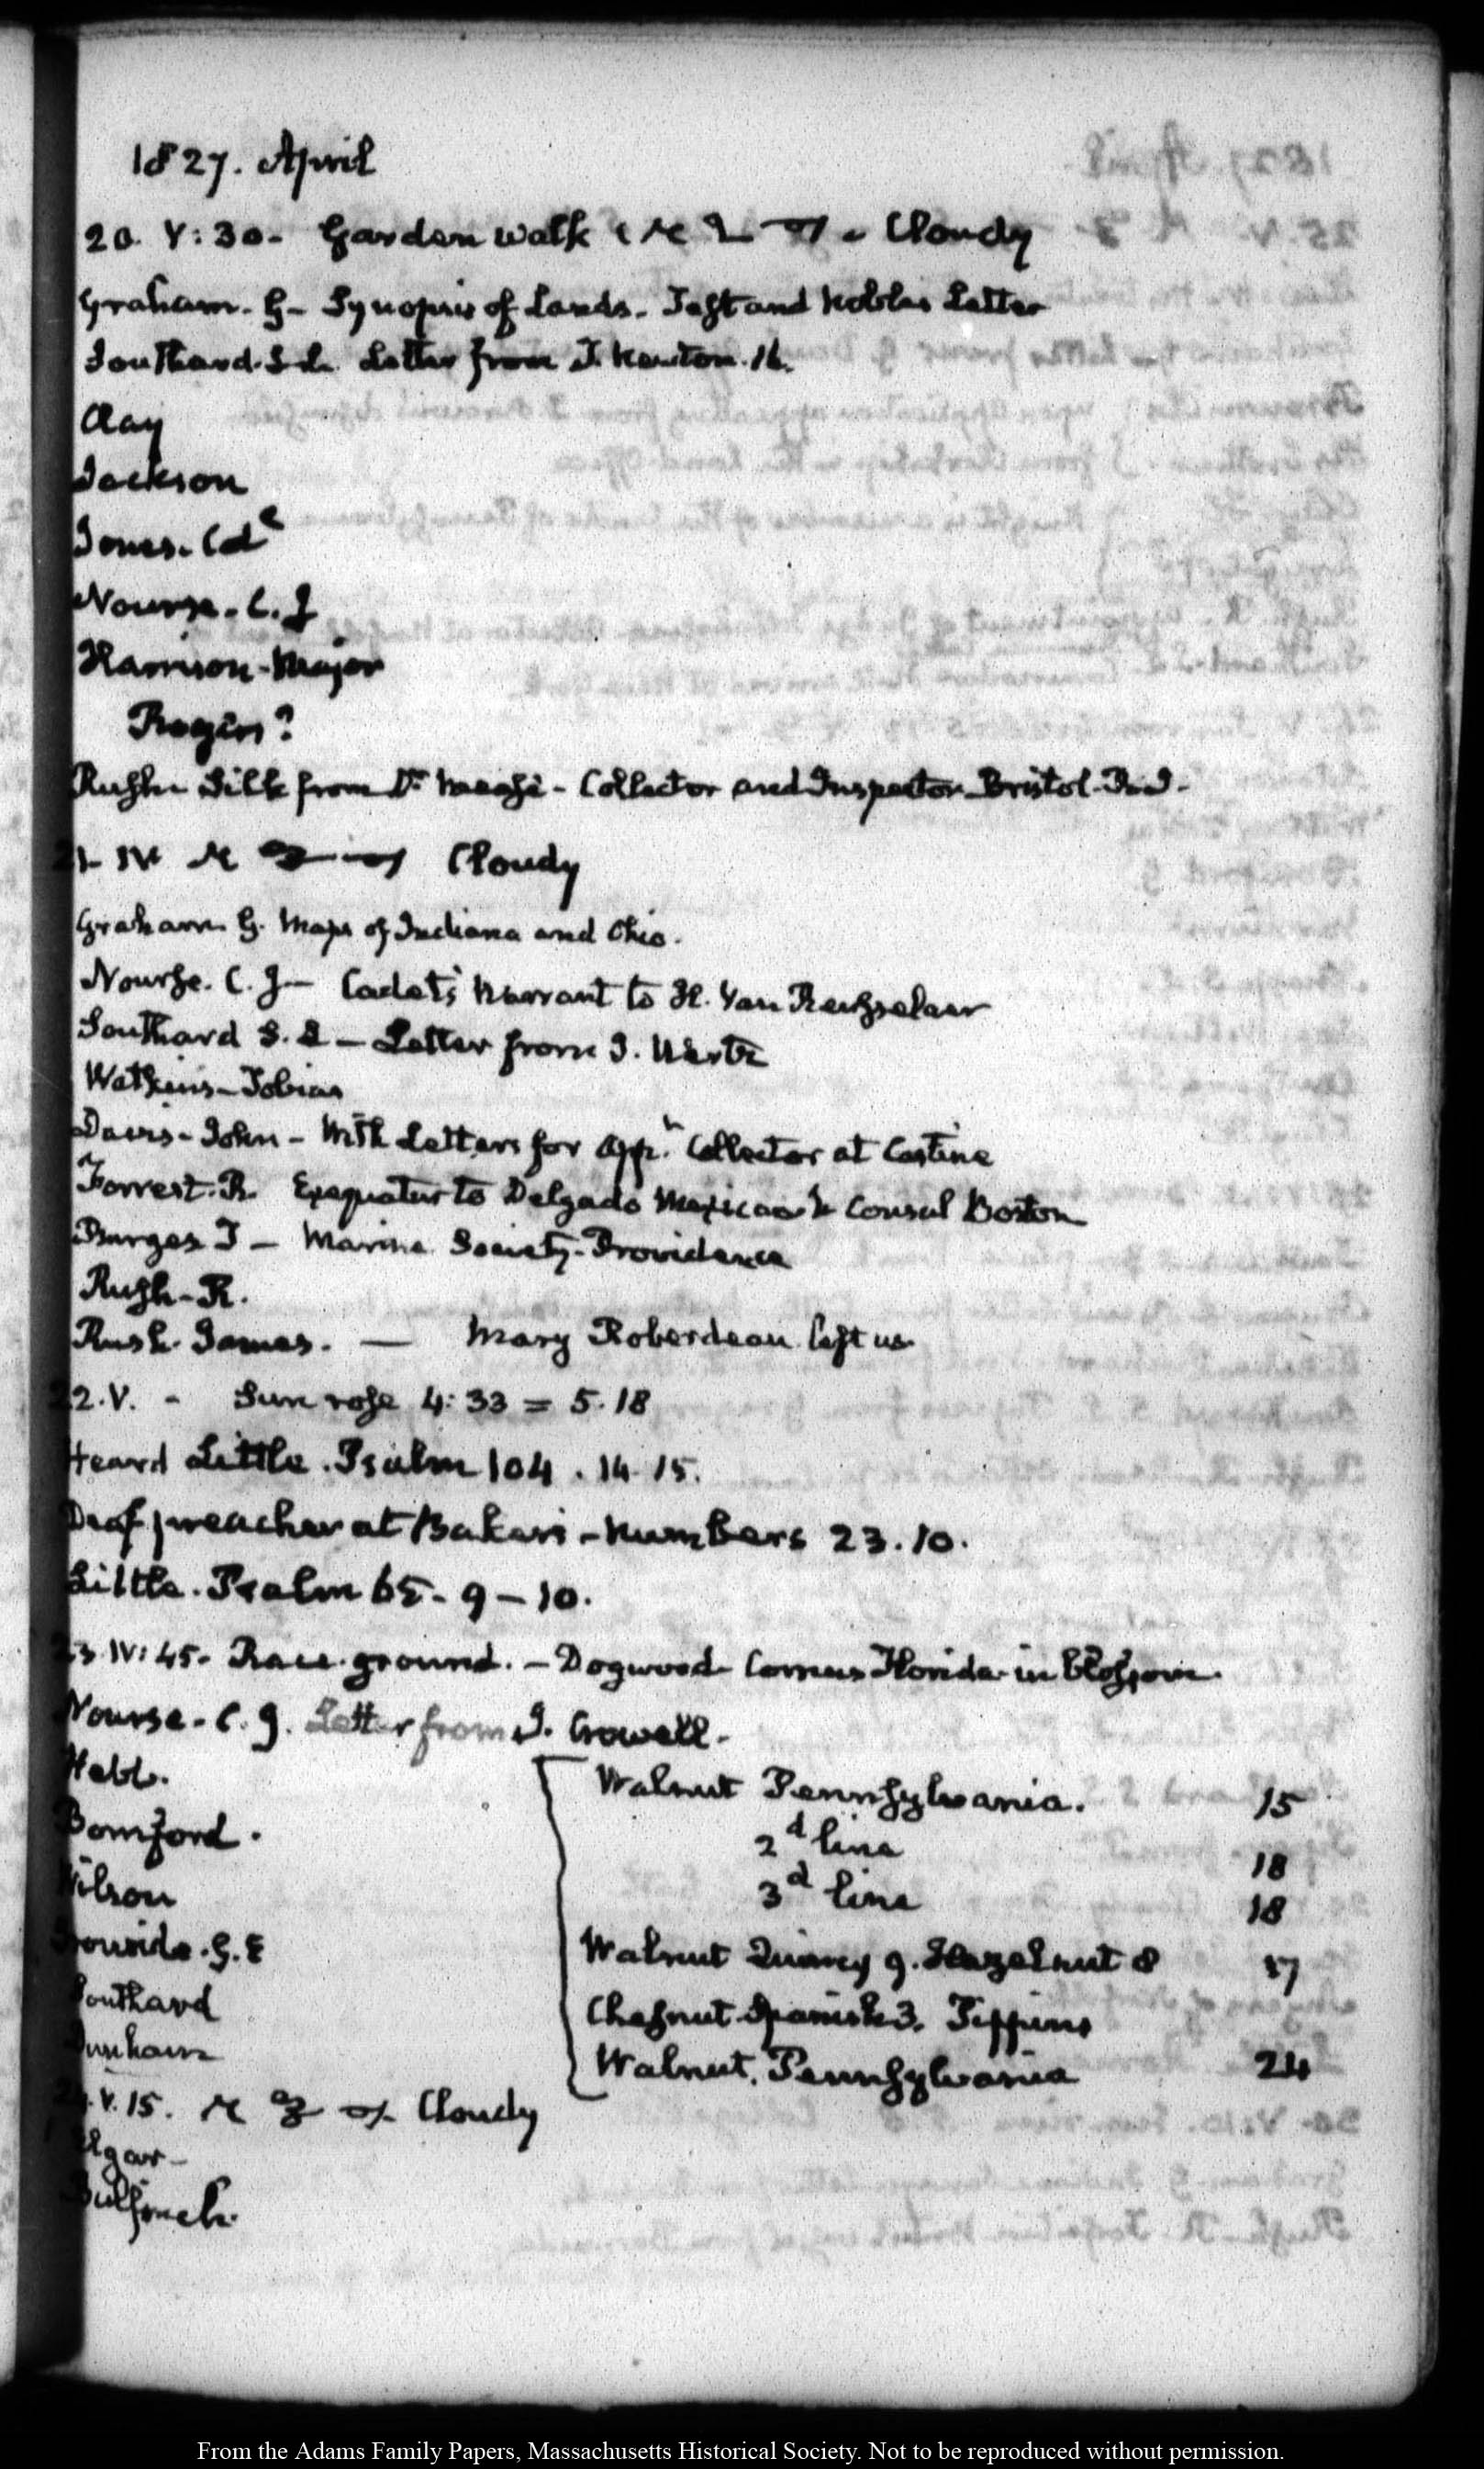 1827. April
20. V:30- Garden walk Cloudy
Graham. G- Synopsis of Lands. Taft and Nobles Letter
Southard. S. L. Letter from T. Newton. 16.
Clay
Jackson
Jones. Col
Nourse. C. J
Harrison. Major
Ragin?
Rush Silk from Dr. - Collector and Inspector Bristol. R.I.
21. IV Cloudy
Graham G. Maps of Indiana and Ohio.
Nourse. C. J- Cadet's Warrant to H. Van Rensselaer
Southard S. L - Letter from J.
Watkins- Tobias
Davis- John - with Letters for Appt. Collector at Castine
Forrest. R. Exequatur to Delgado Mexican V. Consul Boston
Burges T - Marine Society- Providence
Rush- R.
Rush. James. — Mary Roberdeau left us.
22. V. - Sun rose 4:33 = 5.18
Heard Little. Psalm 104. 14. 15.
Deaf preacher at Bakers - Numbers 23. 10.
Little. Psalm 65. 9 - 10.
23. IV:45. Race ground. - Dogwood Cornus Florida in blossom.
Nourse. C. J. Letter from J. Crowell.
Webb.
Bomford.
Wilson
Ironside. G. E
Southard
Dunham
Walnut Pennsylvania. 15
2d line 18
3d line 18
Walnut Quincy 9. Hazelnut 8 17
Chesnut Spanish 3. Pippins
Walnut. Pennsylvania 24
24. V. 15. Cloudy
Elgar-
Bulfinch.
From the Adams Family Papers, Massachusetts Historical Society. Not to be reproduced without permission.